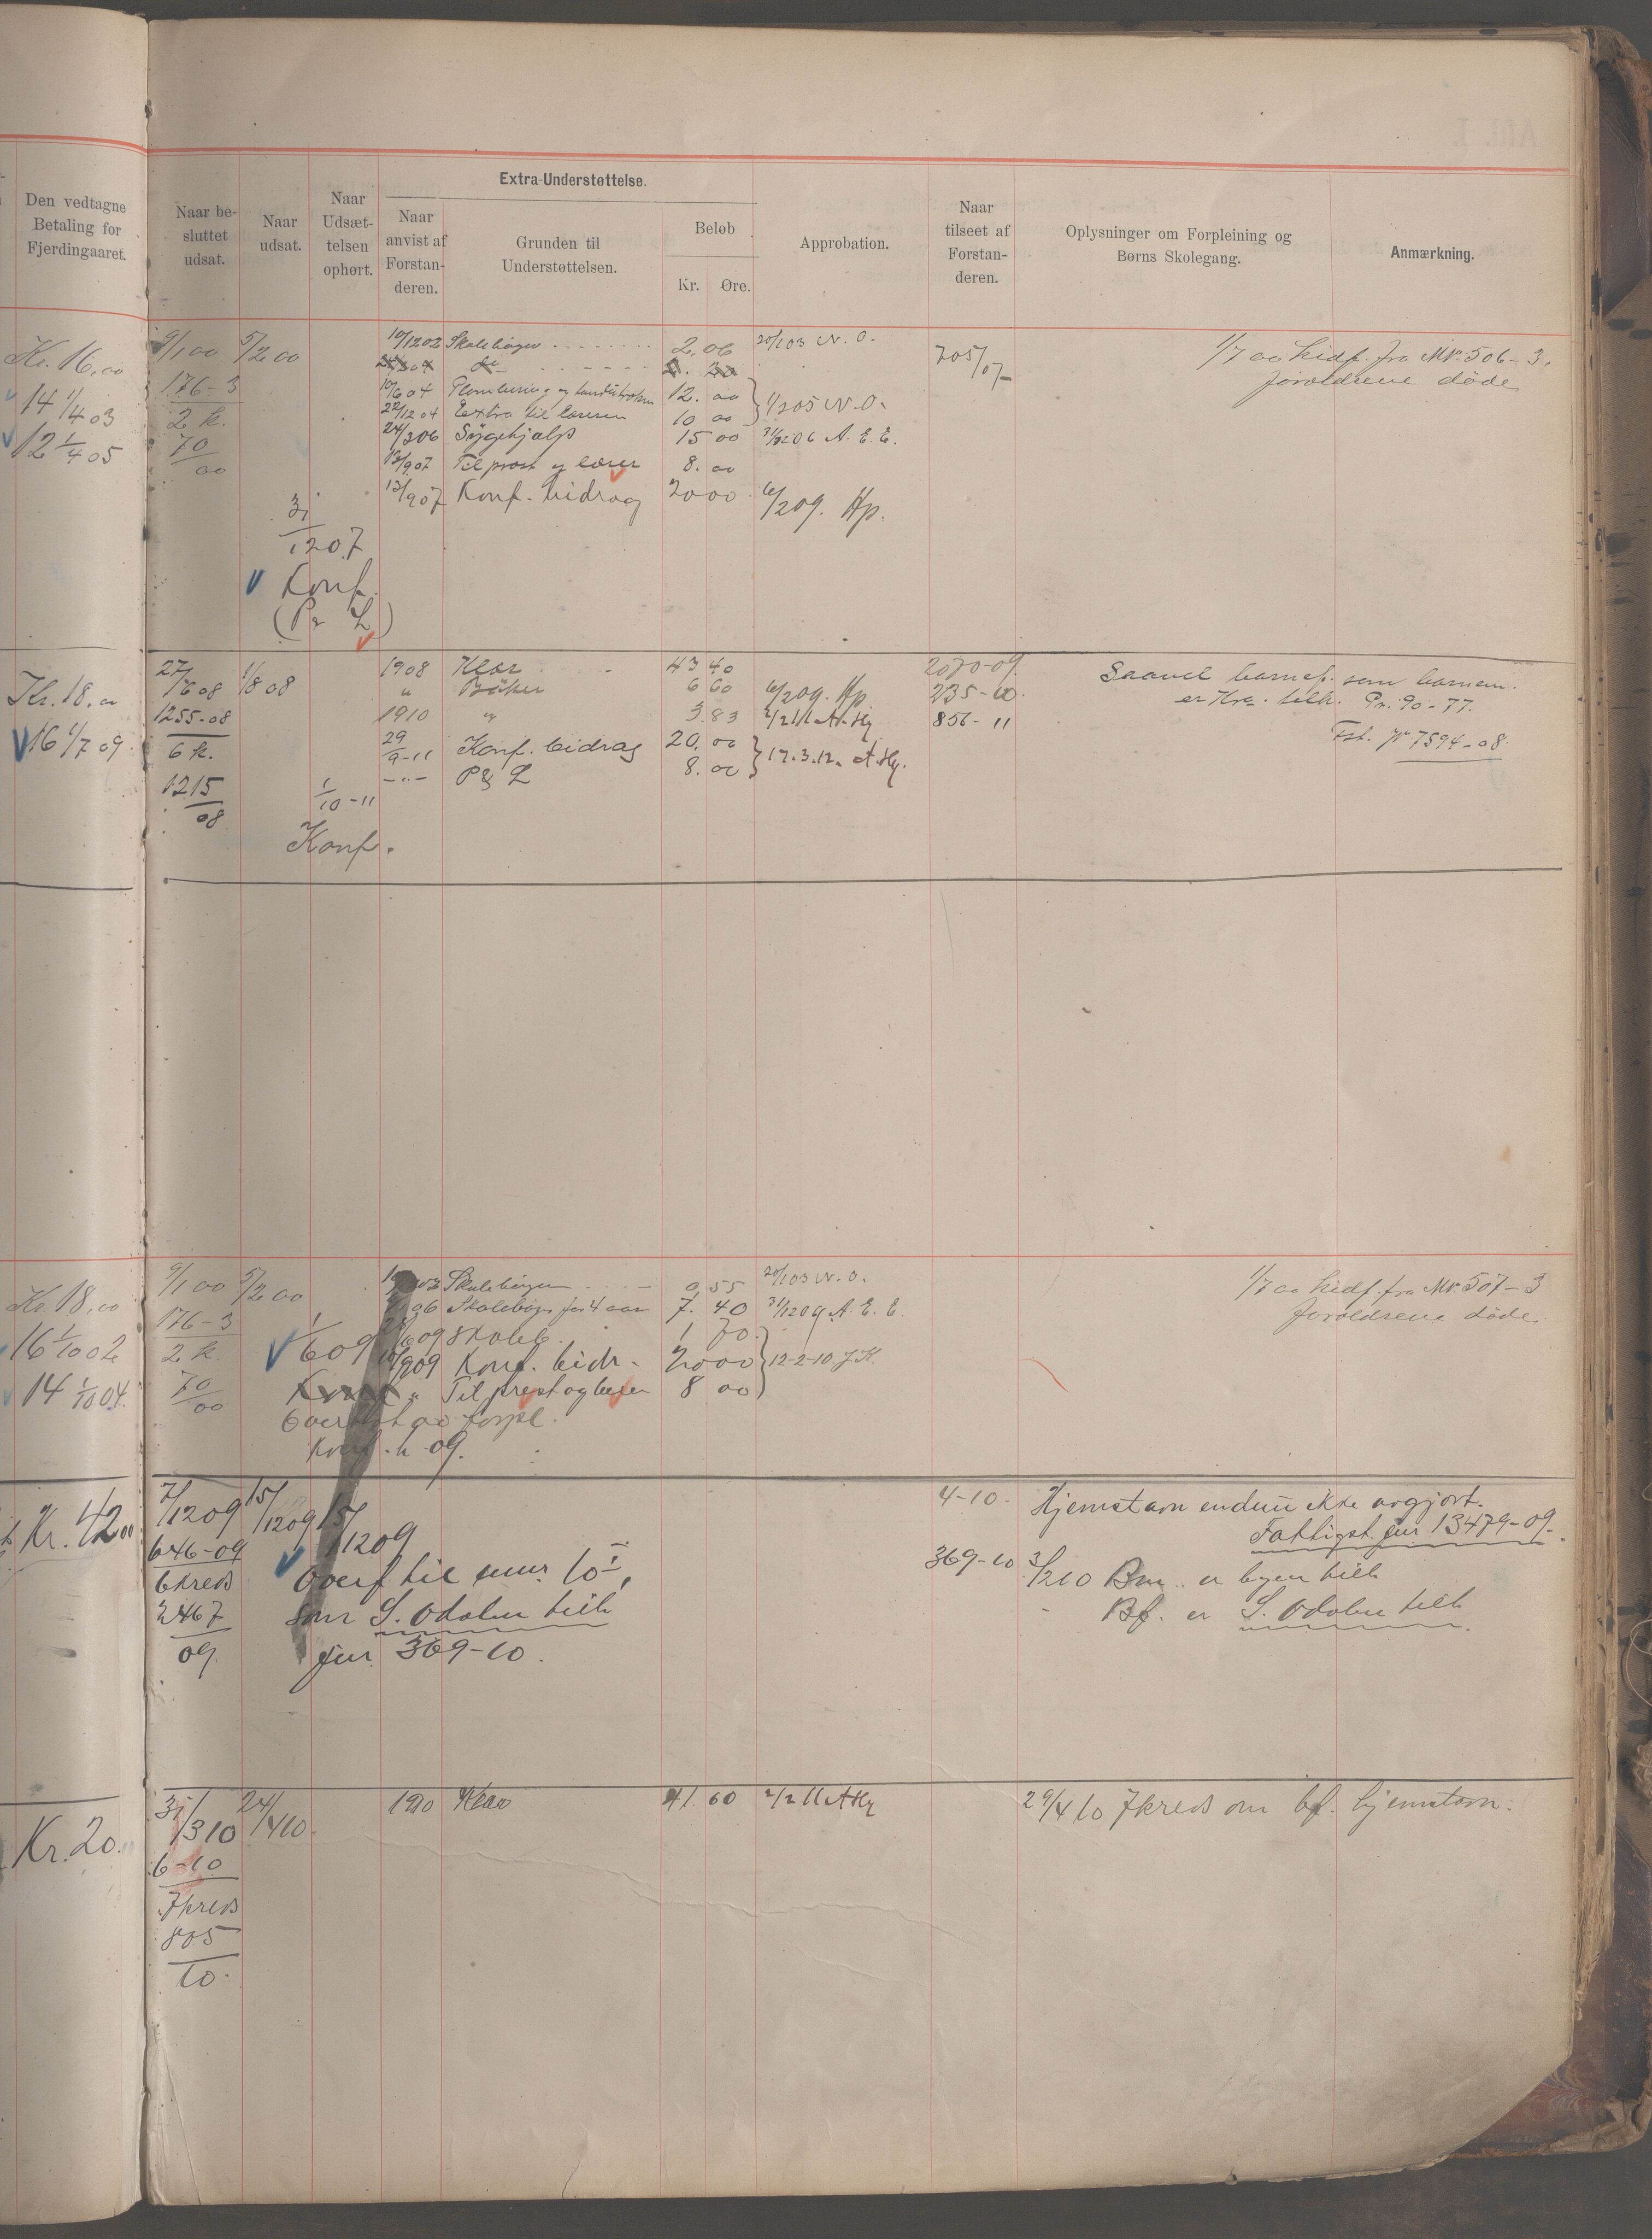 Den vedtagne
Betaling for
Fjerdingaaret.
Naar be-
sluttet
udsat.
Naar
udsat.
Naar
Udsæt-
telsen
ophørt.
Extra-Understøttelse.
Naar
anvist af
Forstan-
deren.
Grunden til
Understøttelsen.
Beløb
Kr. Øre.
Approbation.
Naar
tilseet af
Forstan-
deren.
Oplysninger om Forpleining og
Børns Skolegang.
Anmærkning.
Kr. 16,00
14 1/4 03
12 1/4 05
9/1 00 5/2 00
176-3
2 k.
70
00
31
12 07
Konf.
(Pr L)
10/12 02 Skolebøger 2.06 20/1 03 N.O.
10/6 04 12.00
22/12 04 Extra til læreren 10 00 1/2 05 N.O.
24/3 06 Sygehjælp 15 00 31/12 06 A.E.E.
13/9 07 Til prest og lærer 8.00
13/9 07 Konf. bidrag 20 00 6/2 09. Hp.
705/07
1/7 00 hidf. fra Nr. 506-3.
forældrene døde
Kr. 18.00
16 1/7 09.
27/6 08 1/8 08
1255-08
6 k.
1215
08
1/10-11
Konf.
1908 Klær 43 40
" Bøker 6 60 6/2 09. Hp
1910 " 3.83 2/2 11 A.Hg
29/9-11 Konf. bidrag 20.00
-"- P & L 8.00 17.3.12. A.Hg.
2070-09.
235-10.
856-11
Saavel barnef. som barnem.
er Kra. tilh. Pr. 90-77.
Fst. Jr 7594-08.
Kr. 18,00
16 1/10 02
14 1/10 04.
9/1 00 5/2 00
176-3
2 k.
70
00
1/6 09
Skolebøger 0,55 20/1 03 N.O.
Skolebøger for 4 aar 7.40 31/12 09 A.E.E.
09 Skoleb. 1 70
10/9 09 Konf. bidr. 20 00 12-2-10. J.K.
" Til prest og lærer 8 00
forpl.
Konf. h. 09.
1/7 00 hidf. fra Nr. 507-3
forældrene døde.
Kr. 42.00
7/12 09 15/12 09 15/12 09
646-09
6 kreds
2467
09.
Overf til
som S. Odalen tilh
jur. 369-10.
4-10.
369-10
Hjemstavn endnu ikke avgjort.
Fattigst. jur 13479-09.
3/2 10 Bm. er byen tilh
Bf. er S. Odalen tilh
Kr. 20.
31/3 10 24/4 10.
6-10
7 kreds
805
10.
1910 Klær 41.60 2/2 11 A Hg
29/4 10 7 kreds om bf. hjemstavn.